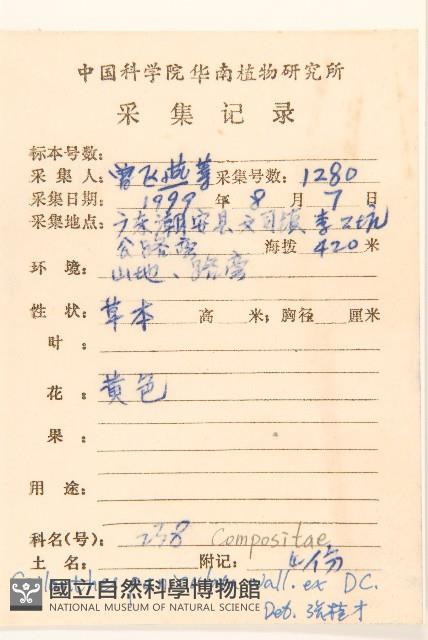 中国科学院华南植物研究所
采集记录
标本号数:
采集人: 曾飞燕等 采集号数: 1280
采集日期: 1999 年 8 月 7 日
采集地点: 广东潮安县文司镇李工坑
公路旁 海拔 420 米
环境: 山地、路旁
性状: 草本 高 米; 胸径 厘米
叶:
花: 黄色
果:
用途:
科名(号): 238 Compositae
土名: 附记: 4份
Wall. ex DC.
Det. 张桂才
國立自然科學博物館
NATIONAL MUSEUM OF NATURAL SCIENCE